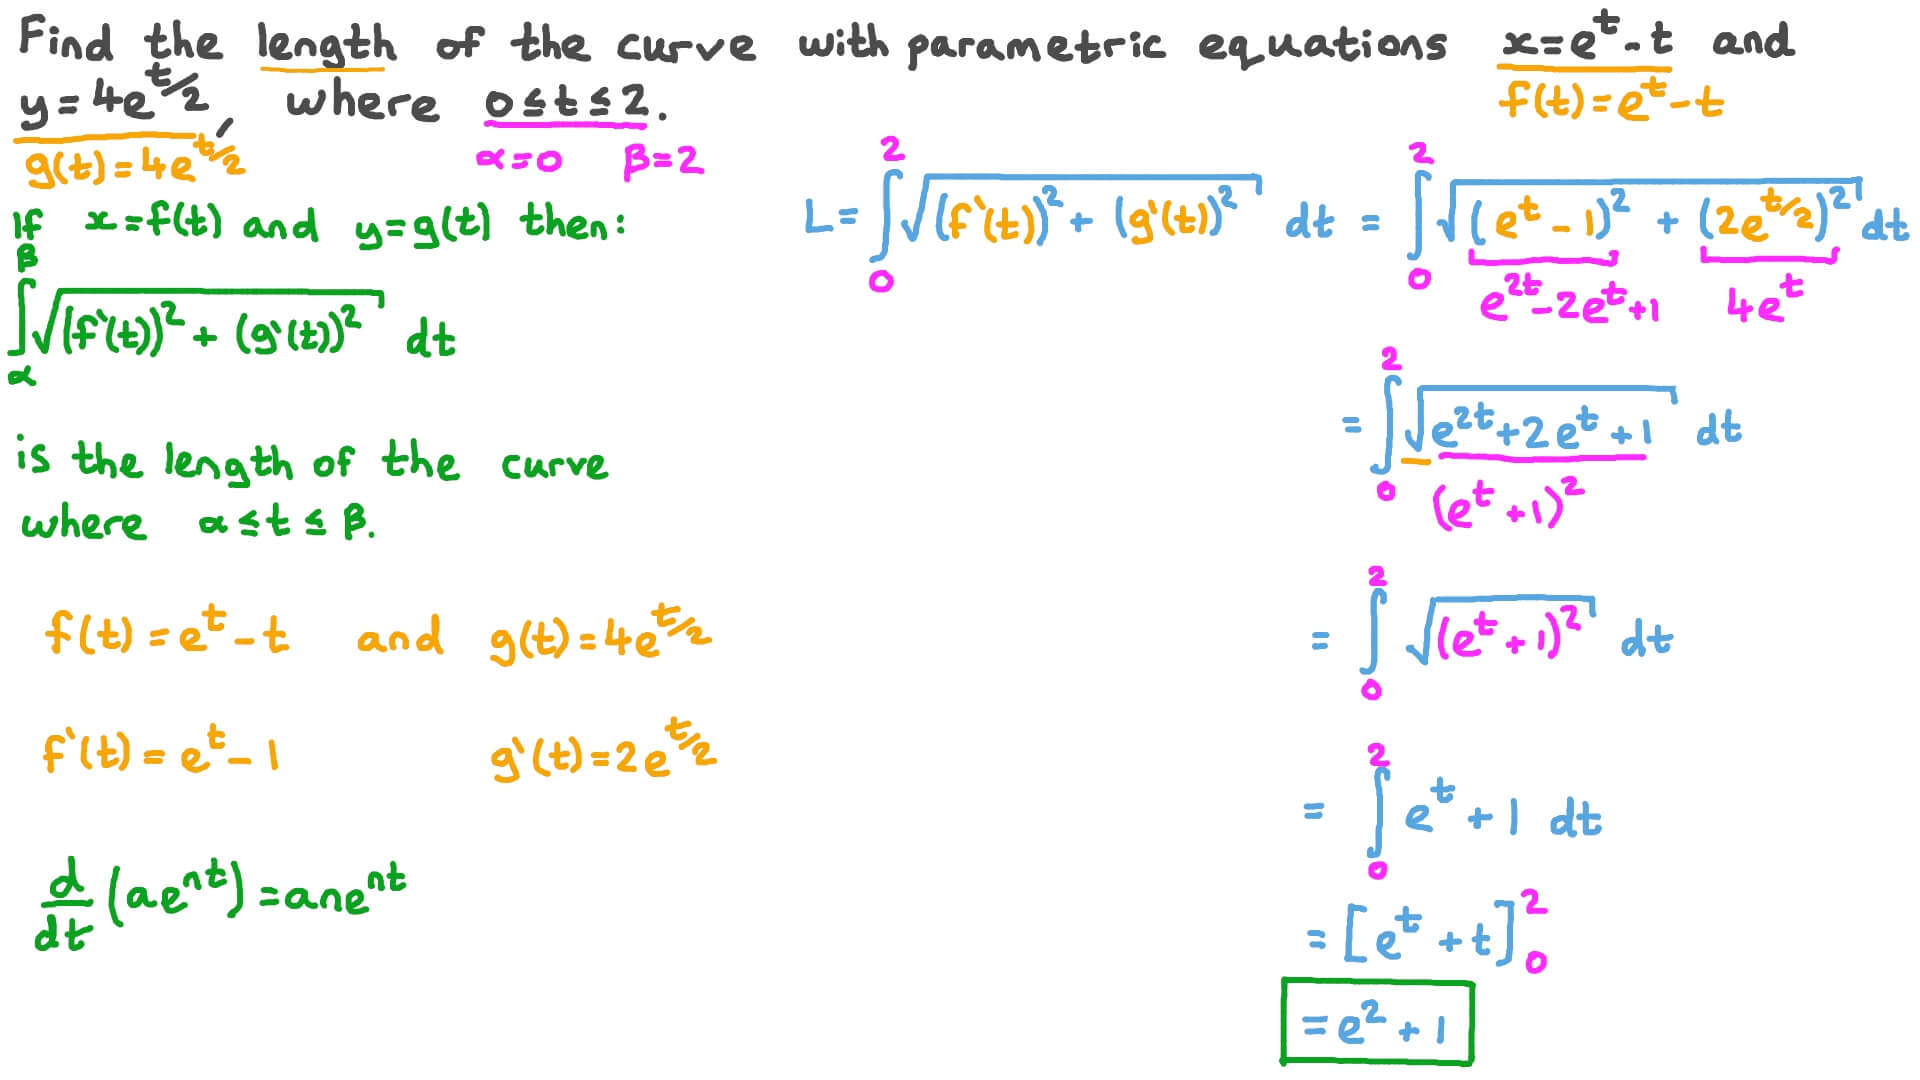 Find the length of the curve with parametric equations x=e^t-t and
y=4e^{t/2}, where 0≤t≤2.
f(t)=e^t-t
g(t)=4e^{t/2}
α=0 β=2
If x=f(t) and y=g(t) then:
∫_α^β √((f'(t))^2 + (g'(t))^2) dt
is the length of the curve
where α≤t≤β.
f(t)=e^t-t and g(t)=4e^{t/2}
f'(t)=e^t-1 g'(t)=2e^{t/2}
d/dt (ae^{nt})=ane^{nt}
L=∫_0^2 √((f'(t))^2 + (g'(t))^2) dt = ∫_0^2 √((e^t-1)^2 + (2e^{t/2})^2) dt
e^{2t}-2e^t+1 4e^t
=∫_0^2 √(e^{2t}+2e^t+1) dt
(e^t+1)^2
=∫_0^2 √((e^t+1)^2) dt
=∫_0^2 e^t+1 dt
=[e^t+t]_0^2
=e^2+1